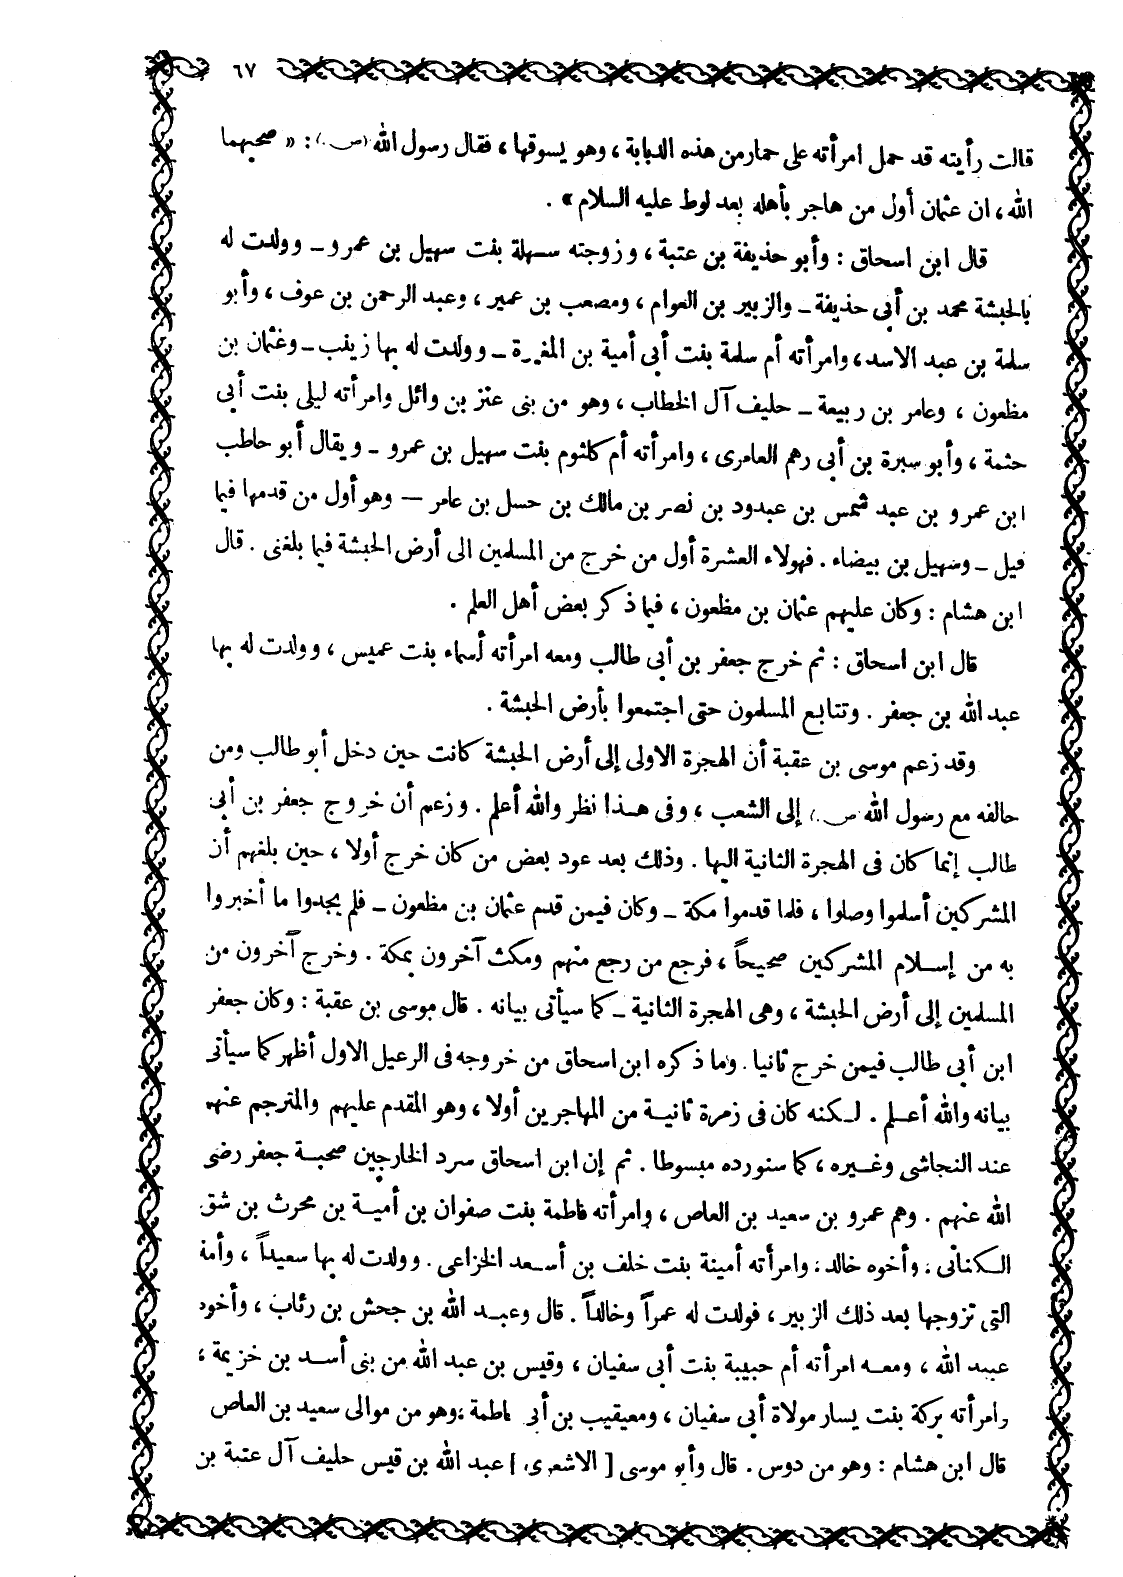 ٦٧
قالت رأيته قد حمل امرأته على حمار من هذه الدبابة ، وهو يسوقها ، فقال رسول الله (ص.) : « صحبهما
الله ، ان عثمان أول من هاجر بأهله بعد لوط عليه السلام » .
قال ابن اسحاق : وأبو حذيفة بن عتبة ، وزوجته سهلة بنت سهيل بن عمرو ــ وولدت له
بالحبشة محمد بن أبى حذيفة ــ والزبير بن العوام ، ومصعب بن عمير ، وعبد الرحمن بن عوف ، وأبو
سلمة بن عبد الاسد ، وامرأته أم سلمة بنت أبى أمية بن المغيرة ــ وولدت له بها زينب ــ وعثمان بن
مظعون ، وعامر بن ربيعة ــ حليف آل الخطاب ، وهو من بنى عنز بن وائل وامرأته ليلى بنت أبى
حثمة ، وأبو سبرة بن أبى رهم العامرى ، وامرأته أم كلثوم بنت سهيل بن عمرو ــ ويقال أبو حاطب
ابن عمرو بن عبد شمس بن عبدود بن نصر بن مالك بن حسل بن عامر — وهو أول من قدمها فيما
قيل ــ وسهيل بن بيضاء . فهولاء العشرة أول من خرج من المسلمين الى أرض الحبشة فيما بلغنى . قال
ابن هشام : وكان عليهم عثمان بن مظعون ، فيما ذكر بعض أهل العلم .
قال ابن اسحاق : ثم خرج جعفر بن أبى طالب ومعه امرأته أسماء بنت عميس ، وولدت له بها
عبد الله بن جعفر . وتتابع المسلمون حتى اجتمعوا بأرض الحبشة .
وقد زعم موسى بن عقبة أن الهجرة الاولى إلى أرض الحبشة كانت حين دخل أبو طالب ومن
حالفه مع رسول الله (ص.) إلى الشعب ، وفى هذا نظر والله أعلم . وزعم أن خروج جعفر بن أبى
طالب إنما كان فى الهجرة الثانية اليها . وذلك بعد عود بعض من كان خرج أولا ، حين بلغهم أن
المشركين أسلموا وصلوا ، فلما قدموا مكة ــ وكان فيمن قدم عثمان بن مظعون ــ فلم يجدوا ما أخبروا
به من إسلام المشركين صحيحاً ، فرجع من رجع منهم ومكث آخرون بمكة . وخرج آخرون من
المسلمين إلى أرض الحبشة ، وهى الهجرة الثانية ــ كما سيأتى بيانه . قال موسى بن عقبة : وكان جعفر
ابن أبى طالب فيمن خرج ثانيا . وما ذكره ابن اسحاق من خروجه فى الرعيل الاول أظهر كما سيأتى
بيانه والله أعلم . لكنه كان فى زمرة ثانية من المهاجرين أولا ، وهو المقدم عليهم والمترجم عنهم
عند النجاشى وغيره ، كما سنورده مبسوطا . ثم إن ابن اسحاق سرد الخارجين صحبة جعفر رضى
الله عنهم . وهم عمرو بن سعيد بن العاص ، وامرأته فاطمة بنت صفوان بن أمية بن محرث بن شق
الكنانى ، وأخوه خالد ، وامرأته أمينة بنت خلف بن أسعد الخزاعى . وولدت له بها سعيداً ، وأمة
التى تزوجها بعد ذلك الزبير ، فولدت له عمراً وخالداً . قال وعبد الله بن جحش بن رئاب ، وأخوه
عبيد الله ، ومعه امرأته أم حبيبة بنت أبى سفيان ، وقيس بن عبد الله من بنى أسد بن خزيمة ،
وامرأته بركة بنت يسار مولاة أبى سفيان ، ومعيقيب بن أبى فاطمة ، وهو من موالى سعيد بن العاص
قال ابن هشام : وهو من دوس . قال وأبو موسى [ الاشعرى ] عبد الله بن قيس حليف آل عتبة بن